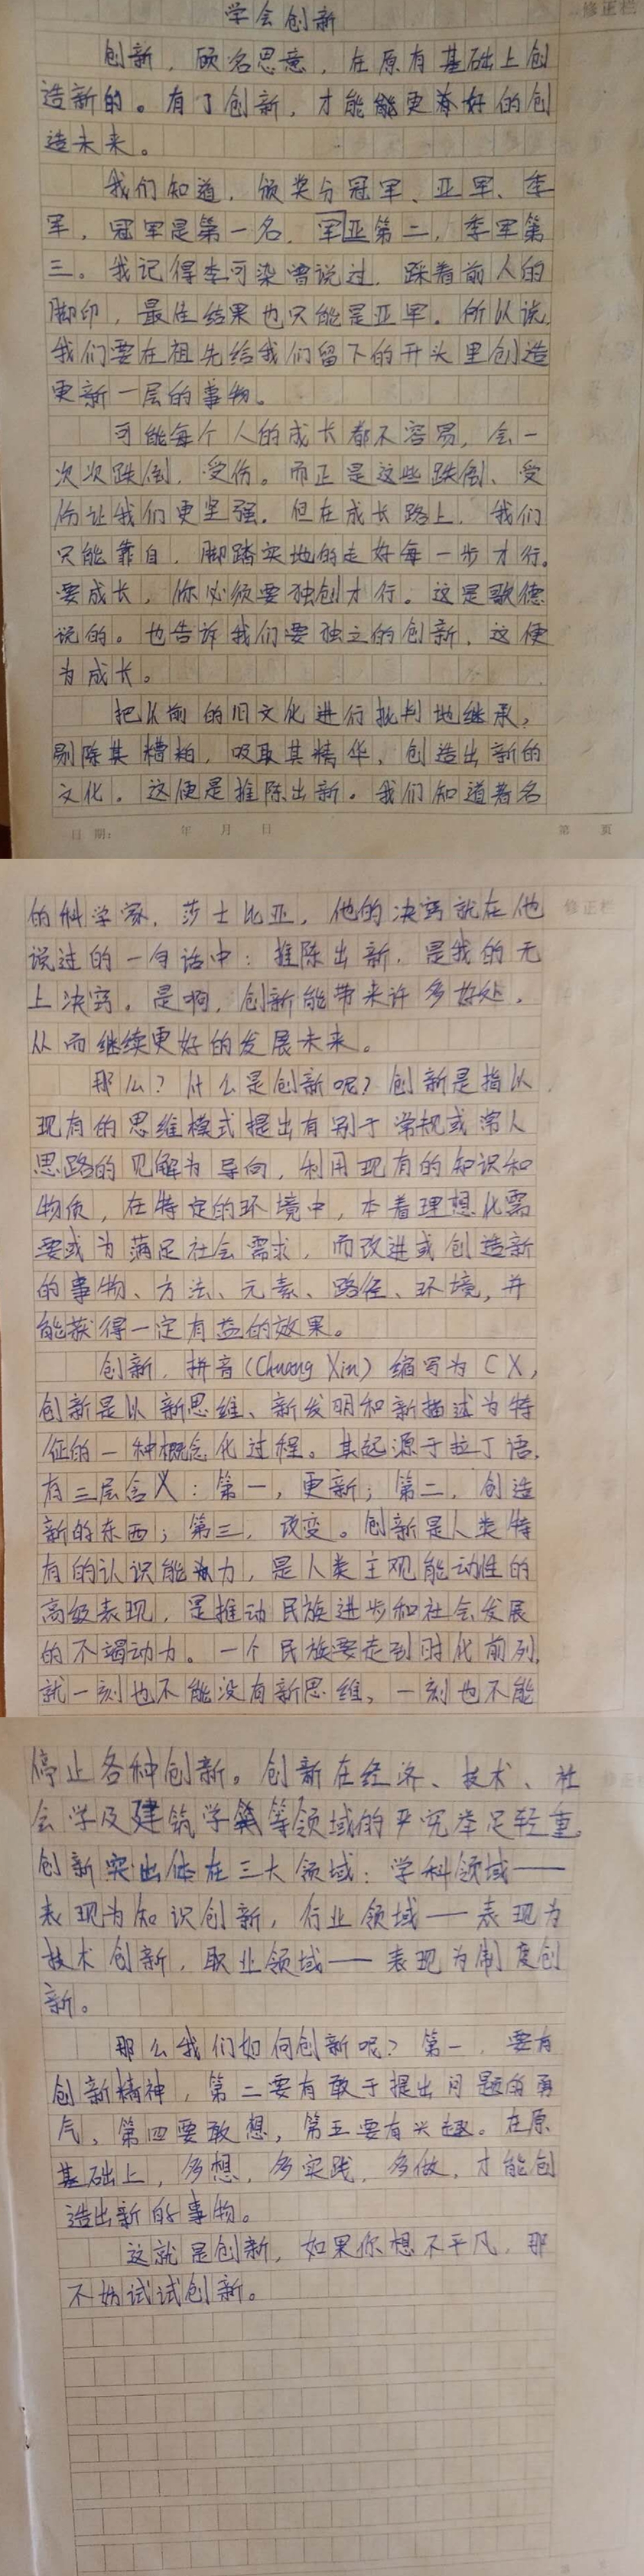 学会创新
修正栏
创新，顾名思意，在原有基础上创
造新的。有了创新，才能能更好的创
造未来。
我们知道，颁奖分冠军、亚军、季
军，冠军是第一名，军亚第二，季军第
三。我记得李可染曾说过，踩着前人的
脚印，最佳结果也只能是亚军。所以说，
我们要在祖先给我们留下的开头里创造
更新一层的事物。
可能每个人的成长都不容易，会一
次次跌倒，受伤。而正是这些跌倒、受
伤让我们更坚强。但在成长路上，我们
只能靠自，脚踏实地的走好每一步才行。
要成长，你必须要独创才行。这是歌德
说的。也告诉我们要独立的创新，这便
为成长。
把从前的旧文化进行批判地继承，
剔除其糟粕，吸取其精华，创造出新的
文化。这便是推陈出新。我们知道著名
日期： 年 月 日 第 页
的科学家，莎士比亚，他的决窍就在他
修正栏
说过的一句话中：推陈出新，是我的无
上决窍。是啊，创新能带来许多好处，
从而继续更好的发展未来。
那么？什么是创新呢？创新是指以
现有的思维模式提出有别于常规或常人
思路的见解为导向，利用现有的知识和
物质，在特定的环境中，本着理想化需
要或为满足社会需求，而改进或创造新
的事物、方法、元素、路径、环境，并
能获得一定有益的效果。
创新，拼音（Chuang Xin）缩写为CX，
创新是以新思维、新发明和新描述为特
征的一种概念化过程。其起源于拉丁语，
有三层含义：第一，更新；第二，创造
新的东西；第三，改变。创新是人类特
有的认识能力，是人类主观能动性的
高级表现，是推动民族进步和社会发展
的不竭动力。一个民族要走到时代前列，
就一刻也不能没有新思维，一刻也不能
停止各种创新。创新在经济、技术、社
会学及建筑学等领域的研究举足轻重
创新突出体在三大领域：学科领域——
表现为知识创新，行业领域——表现为
技术创新，职业领域——表现为制度创
新。
那么我们如何创新呢？第一，要有
创新精神，第二要有敢于提出问题的勇
气，第四要敢想，第五要有兴趣。在原
基础上，多想，多实践，多做，才能创
造出新的事物。
这就是创新，如果你想不平凡，那
不妨试试创新。